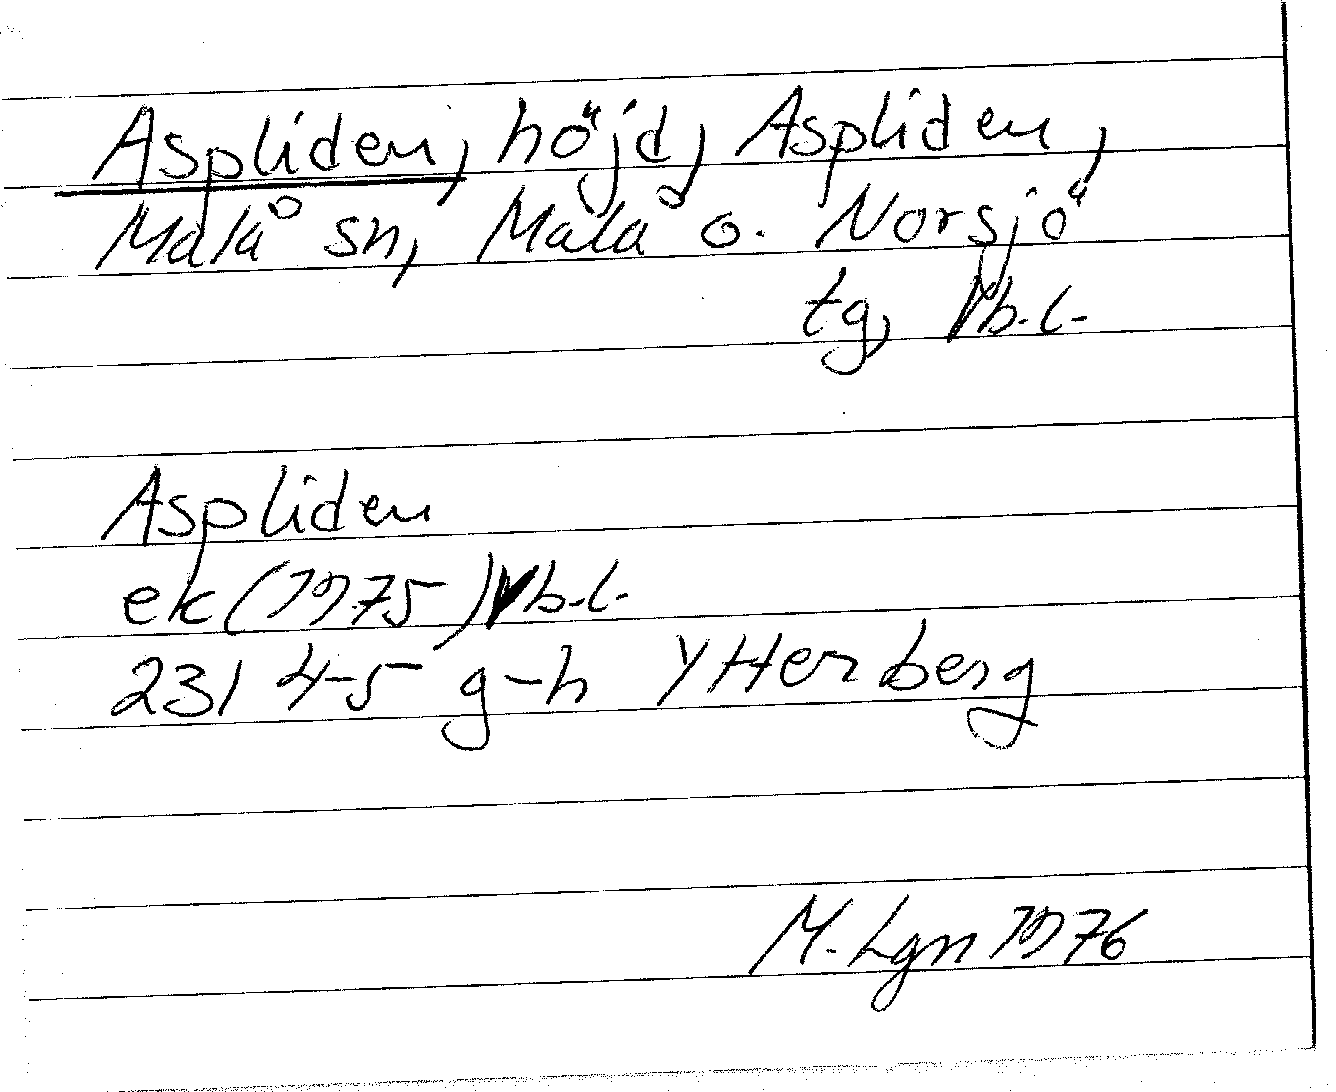 Aspliden, höjd, Aspliden,
Malå sn, Malå o. Norsjö
tg, Vb.l.
Aspliden
ek (1975) Vb.l.
231 4-5 g-h Ytterberg
M. Lgn 1976